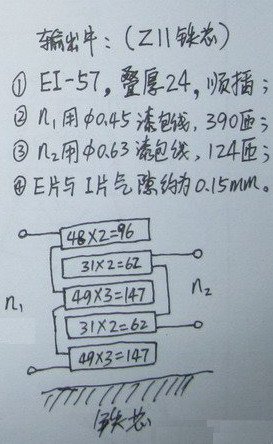 输出牛：(Z11铁芯)
① EI-57，叠厚24，顺插；
② n₁用φ0.45漆包线，390匝；
③ n₂用φ0.63漆包线，124匝；
④ E片与I片气隙约为0.15mm。
48×2=96
31×2=62
n₁
49×3=147
n₂
31×2=62
49×3=147
铁芯